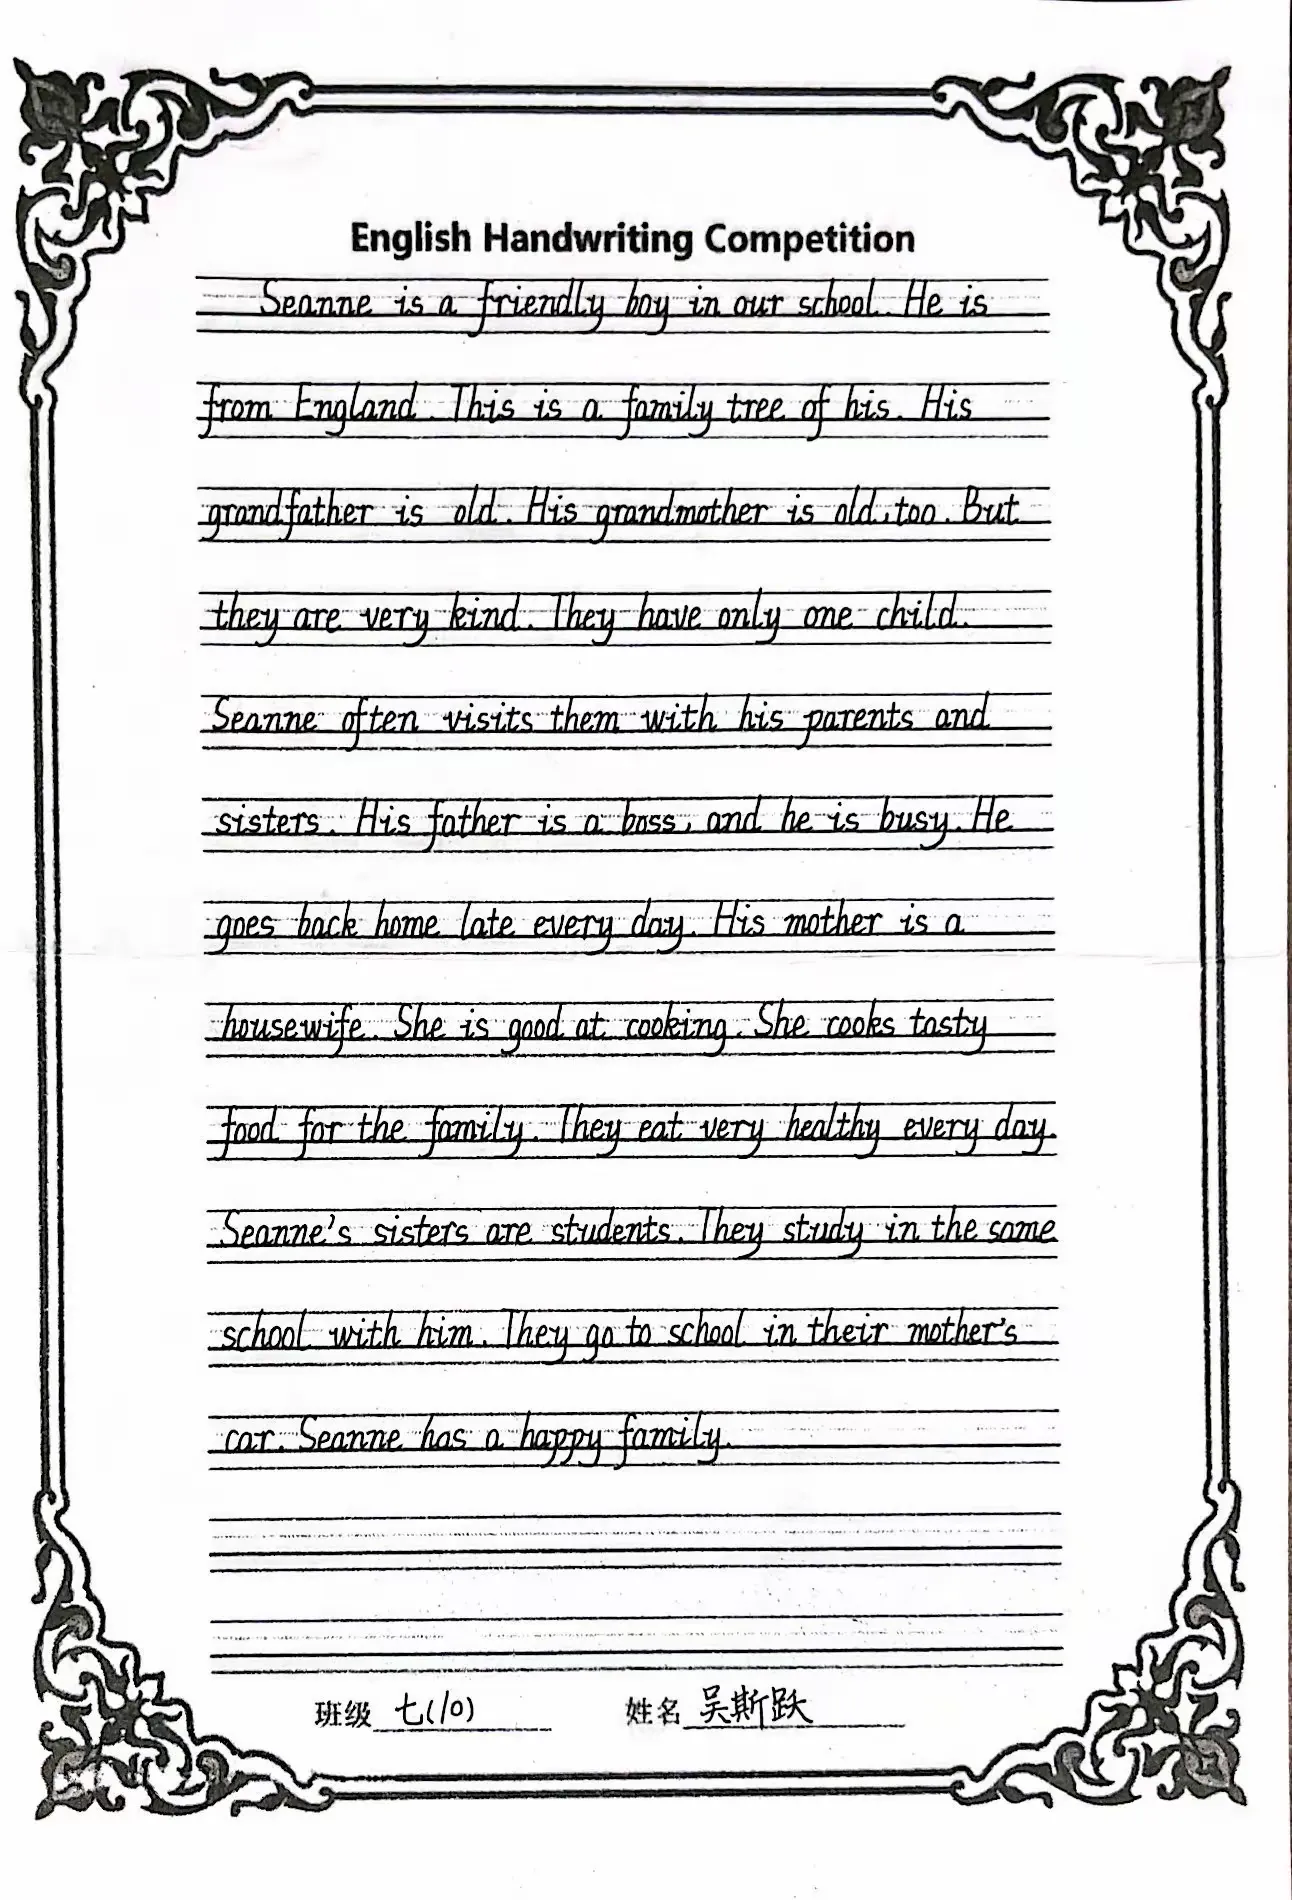 English Handwriting Competition
Seanne is a friendly boy in our school. He is
from England. This is a family tree of his. His
grandfather is old. His grandmother is old, too. But
they are very kind. They have only one child.
Seanne often visits them with his parents and
sisters. His father is a boss, and he is busy. He
goes back home late every day. His mother is a
housewife. She is good at cooking. She cooks tasty
food for the family. They eat very healthy every day.
Seanne's sisters are students. They study in the same
school with him. They go to school in their mother's
car. Seanne has a happy family.
班级 七(10) 姓名 吴斯跃